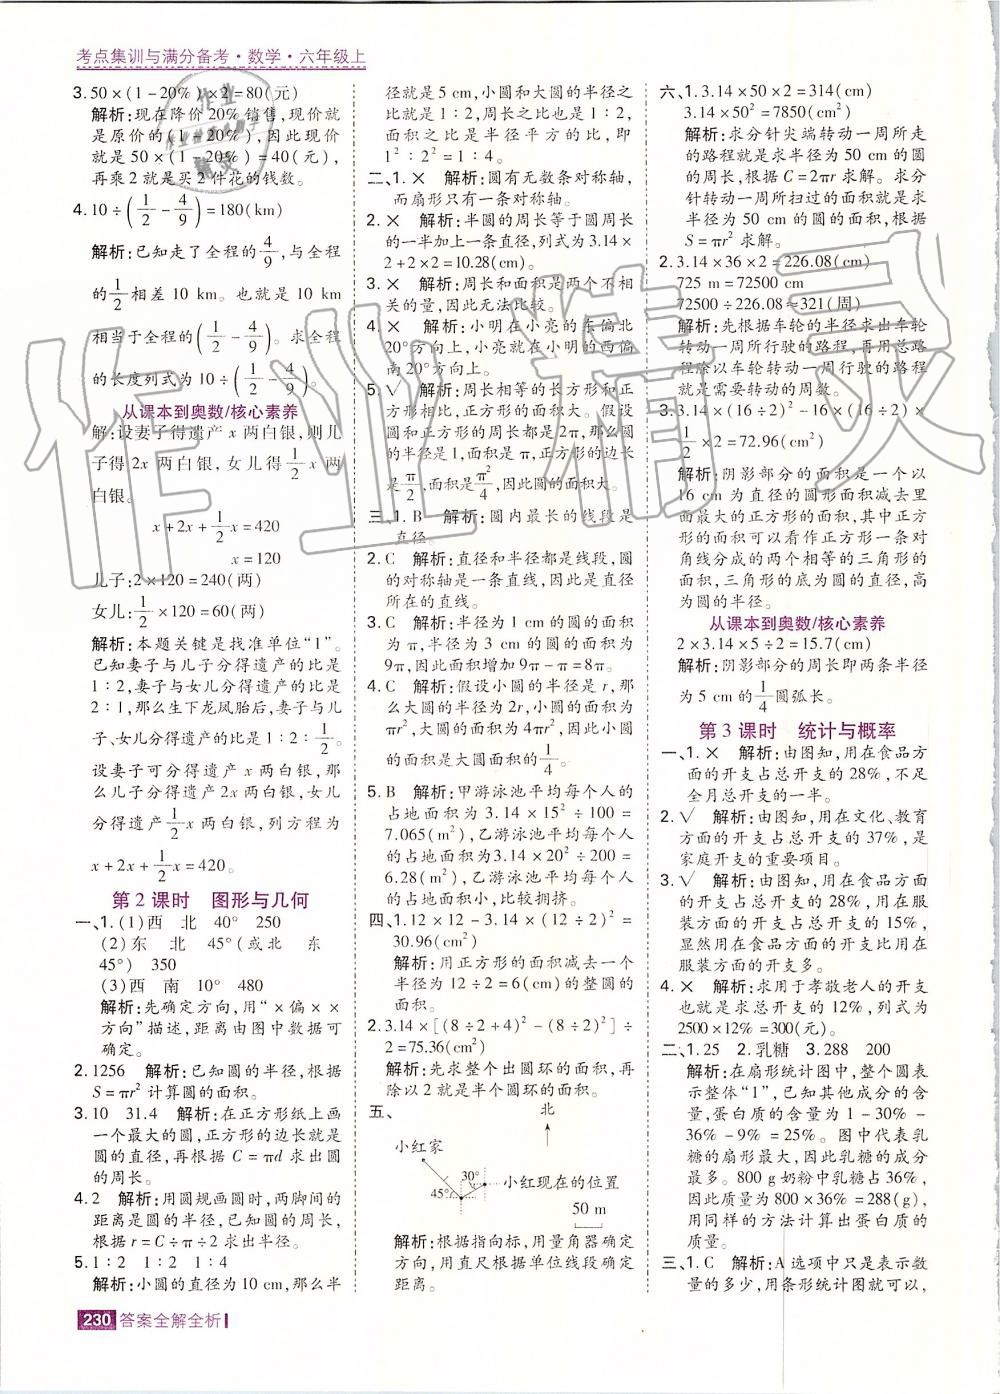 考点集训与满分备考·数学·六年级上
3. 50×(1-20%)×2=80(元)
解析:现在降价20%销售,现价就
是原价的(1-20%),因此现价
就是50×(1-20%)=40(元),
再乘2就是买2件花的钱数。
4. 10÷(1/2-4/9)=180(km)
解析:已知走了全程的4/9,与全程
的1/2相差10 km。也就是10 km
相当于全程的(1/2-4/9)。求全程
的长度列式为10÷(1/2-4/9)。
从课本到奥数/核心素养
解:设妻子得遗产x两白银,则儿
子得2x两白银,女儿得1/2x两
白银。
x+2x+1/2x=420
x=120
儿子:2×120=240(两)
女儿:1/2×120=60(两)
解析:本题关键是找准单位“1”。
已知妻子与儿子分得遗产的比是
1∶2,妻子与女儿分得遗产的比是
2∶1,那么生下龙凤胎后,妻子、儿
子、女儿分得遗产的比是1∶2∶1/2。
设妻子可分得遗产x两白银,那
么儿子分得遗产2x两白银,女儿
分得遗产1/2x两白银,列方程为
x+2x+1/2x=420。
第2课时 图形与几何
一、1.(1)西 北 40° 250
(2)东 北 45°(或北 东
45°) 350
(3)西 南 10° 480
解析:先确定方向,用“×偏××
方向”描述,距离由图中数据可
确定。
2. 1256 解析:已知圆的半径,根据
S=πr²计算圆的面积。
3. 10 31.4 解析:在正方形纸上画
一个最大的圆,正方形的边长就是
圆的直径,再根据C=πd求出圆
的周长。
4. 2 解析:用圆规画圆时,两脚间的
距离是圆的半径,已知圆的周长,
根据r=C÷π÷2求出圆的半径。
5. 1∶2 1∶2 1∶4
解析:小圆的直径为10 cm,那么半
径就是5 cm,小圆和大圆的半径之
比就是1∶2,周长之比也是1∶2,
面积之比是半径平方的比,即
1²∶2²=1∶4。
二、1. × 解析:圆有无数条对称轴,
而扇形只有一条对称轴。
2. × 解析:半圆的周长等于圆周长
的一半加上一条直径,列式为3.14×
2+2×2=10.28(cm)。
3. × 解析:周长和面积是两个不相
关的量,因此无法比较。
4. × 解析:小明在小亮的东偏北
20°方向上,小亮就在小明的西偏
南20°方向上。
5. √ 解析:周长相等的长方形和正
方形相比,正方形的面积大。假设
圆和正方形的周长都是2π,那么圆
的半径是1,面积是π,正方形的边长
是π/2,面积是π²/4,因此圆的面积大。
三、1. B 解析:圆内最长的线段是
直径。
2. C 解析:直径和半径都是线段,圆
的对称轴是一条直线,因此是直径
所在的直线。
3. C 解析:半径为1 cm的圆的面积
为π,半径为3 cm的圆的面积为
9π,因此面积增加9π-π=8π。
4. C 解析:假设小圆的半径是r,那
么大圆的半径为2r,小圆的面积为
πr²,大圆的面积为4πr²,因此小圆
的面积是大圆面积的1/4。
5. B 解析:甲游泳池平均每个人的
占地面积为3.14×15²÷100=
7.065(m²),乙游泳池平均每个人
的占地面积为3.14×20²÷200=
6.28(m²),乙游泳池平均每个人
的占地面积小,比较拥挤。
四、1. 12×12-3.14×(12÷2)²=
30.96(cm²)
解析:用正方形的面积减去一个
半径为12÷2=6(cm)的整圆的
面积。
2. 3.14×[(8÷2+4)²-(8÷2)²]÷
2=75.36(cm²)
解析:先求整个出圆环的面积,再
除以2就是半个圆环的面积。
五、
北
小红家
30°
45°
小红现在的位置
50 m
解析:根据指向标,用量角器确定
方向,用直尺根据单位线段确定
距离。
六、1. 3.14×50×2=314(cm)
3.14×50²=7850(cm²)
解析:求分针尖端转动一周所走
的路程就是求半径为50 cm的圆
的周长,根据C=2πr求解。求分
针转动一周所扫过的面积就是求
半径为50 cm的圆的面积,根据
S=πr²求解。
2. 3.14×36×2=226.08(cm)
725 m=72500 cm
72500÷226.08≈321(周)
解析:先根据车轮的半径求出车轮
转动一周所行驶的路程,再用总路
程除以车轮转动一周的路程,就
是需要转动的周数。
3. 3.14×(16÷2)²-16×(16÷2)×
1/2×2=72.96(cm²)
解析:阴影部分的面积是一个以
16 cm为直径的圆形面积减去里
面最大的正方形的面积,其中正方
形的面积可以看作正方形一条对
角线分成的两个相等的三角形的
面积,三角形的底为圆的直径,高
为圆的半径。
从课本到奥数/核心素养
2×3.14×5÷2=15.7(cm)
解析:阴影部分的周长即两条半径
为5 cm的1/4圆弧长。
第3课时 统计与概率
一、1. × 解析:由图知,用在食品方
面的开支占总开支的28%,不足
全月总开支的一半。
2. √ 解析:由图知,用在文化、教育
方面的开支占总开支的37%,是
家庭开支的重要项目。
3. √ 解析:由图知,用在食品方面
的开支占总开支的28%,用在服
装方面的开支占总开支的15%,
显然用在食品方面的开支比用在
服装方面的开支多。
4. × 解析:求用于孝敬老人的开支
也就是求总开支的12%,列式为
2500×12%=300(元)。
二、1. 25 2. 乳糖 3. 288 200
解析:在扇形统计图中,整个圆表
示整体“1”,已知其他成分的含
量,蛋白质的含量为1-30%-
36%-9%=25%。图中代表乳
糖的扇形最大,因此乳糖的成分
最多。800 g奶粉中乳糖占36%,
因此质量为800×36%=288(g),
用同样的方法计算出蛋白质的
质量。
三、1. C 解析:A选项中只是表示数
量的多少,用条形统计图就可以,
230 答案全解全析
作业精灵